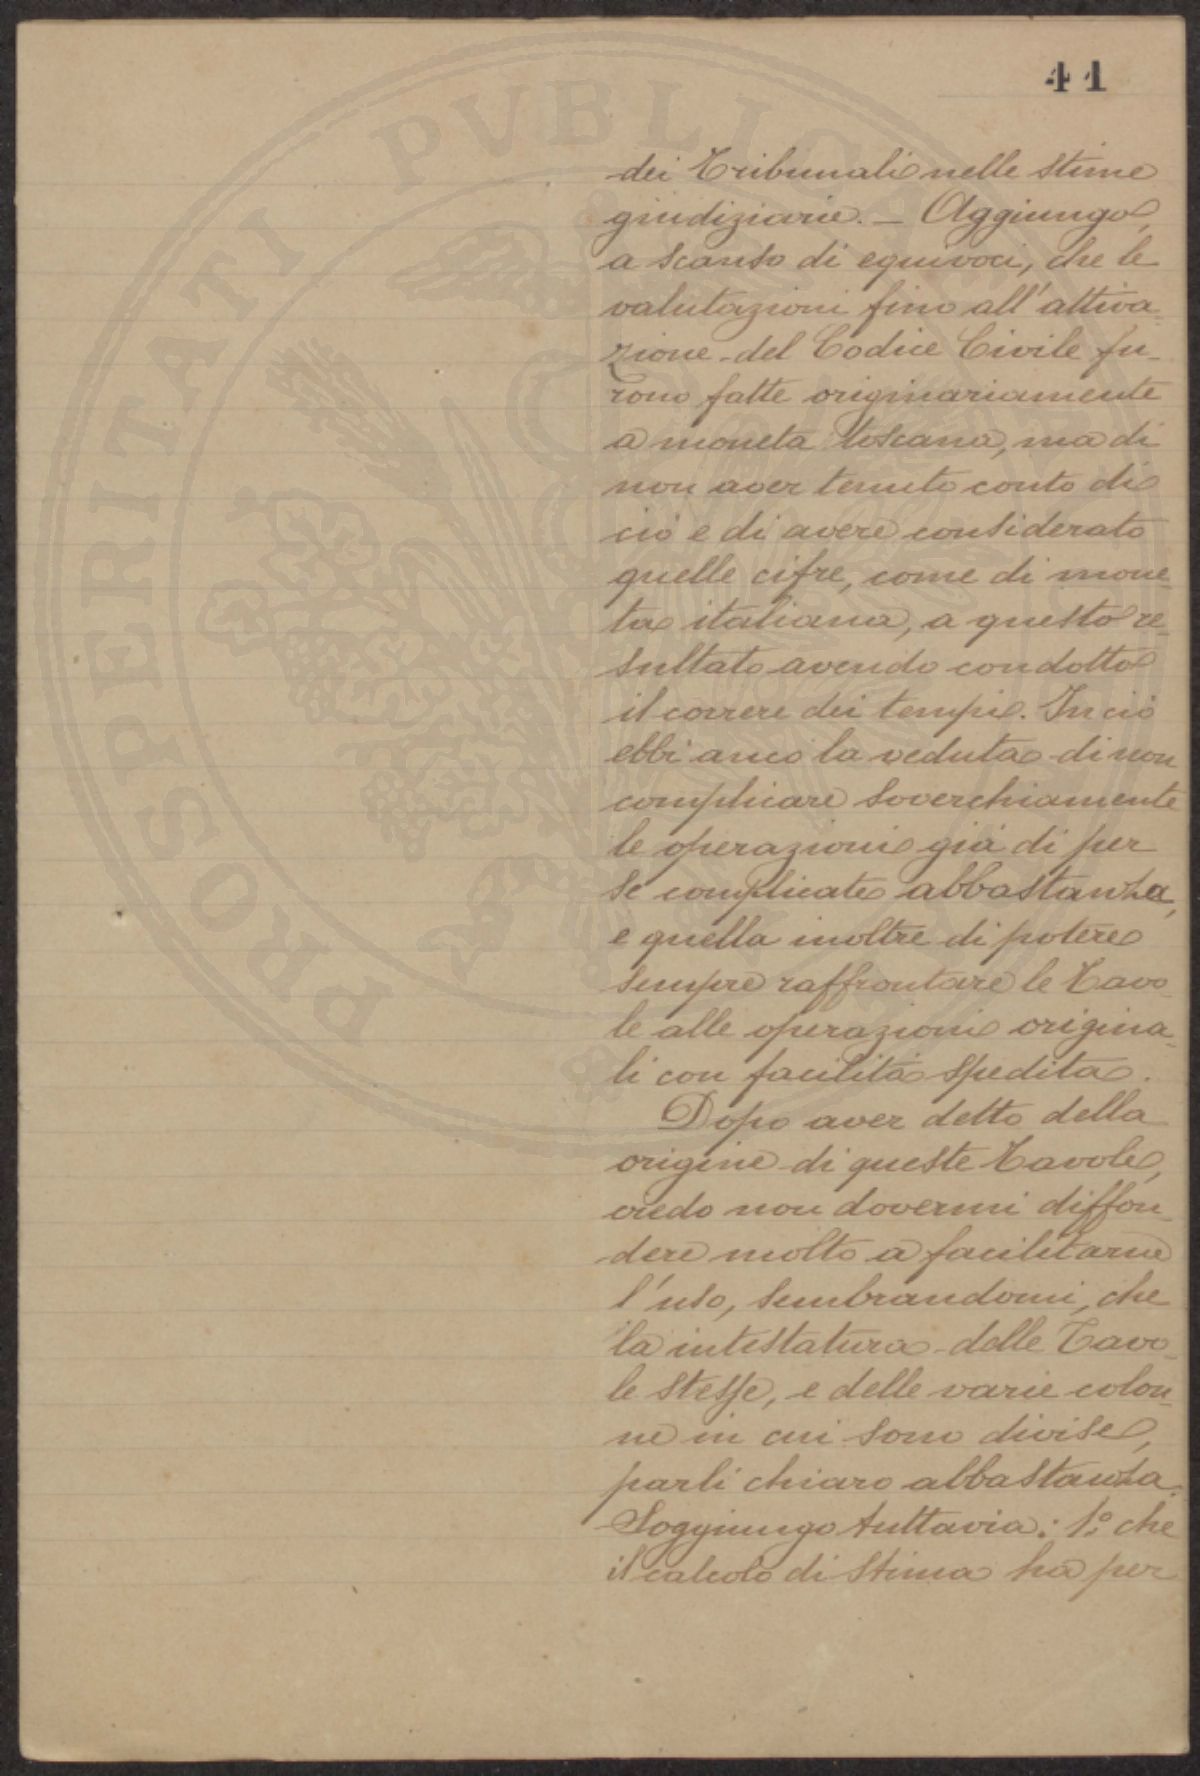 41
dei Tribunali nelle stime
giudiziarie. – Aggiungo,
a scanso di equivoci, che le
valutazioni fino all'attiva-
zione del Codice Civile fu-
rono fatte originariamente
a moneta toscana, ma di
non aver tenuto conto di
ciò e di avere considerato
quelle cifre, come di mone-
ta italiana, a questo re-
sultato avendo condotto
il correre dei tempi. In ciò
ebbi anco la veduta di non
complicare soverchiamente
le operazioni già di per
se complicate abbastanza,
e quella inoltre di potere
sempre raffrontare le Tavo-
le alle operazioni origina-
li con facilità spedita.
Dopo aver detto della
origine di queste Tavole,
credo non dovermi diffon-
dere molto a facilitarne
l'uso, sembrandomi, che
la intestatura delle Tavo-
le stesse, e delle varie colon-
ne in cui sono divise,
parli chiaro abbastanza.
Soggiungo tuttavia: 1.° che
il calcolo di stima ha per
PROSPERITATI PVBLIC